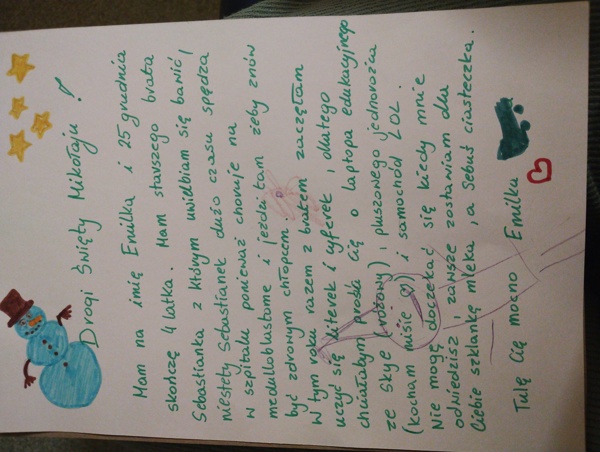 Drogi Święty Mikołaju !
Mam na imię Emilka i 25 grudnia
skończę 4 latka. Mam starszego brata
Sebastianka z którym uwielbiam się bawić,
niestety Sebastianek dużo czasu spędza
w szpitalu ponieważ choruje na
medulloblastome i jeździ tam żeby znów
być zdrowym chłopcem.
W tym roku razem z bratem zaczęłam
uczyć się literek i cyferek , dlatego
chciałabym prosić Cię o laptopa edukacyjnego
ze Skye (różowy) , pluszonego jednorożca
(kocham misie ♡) i samochód LOL .
Nie mogę doczekać się kiedy mnie
odwiedzisz , zawsze zostawiam dla
Ciebie szklankę mleka , a Sebuś ciasteczka .
Tulę Cię mocno Emilka